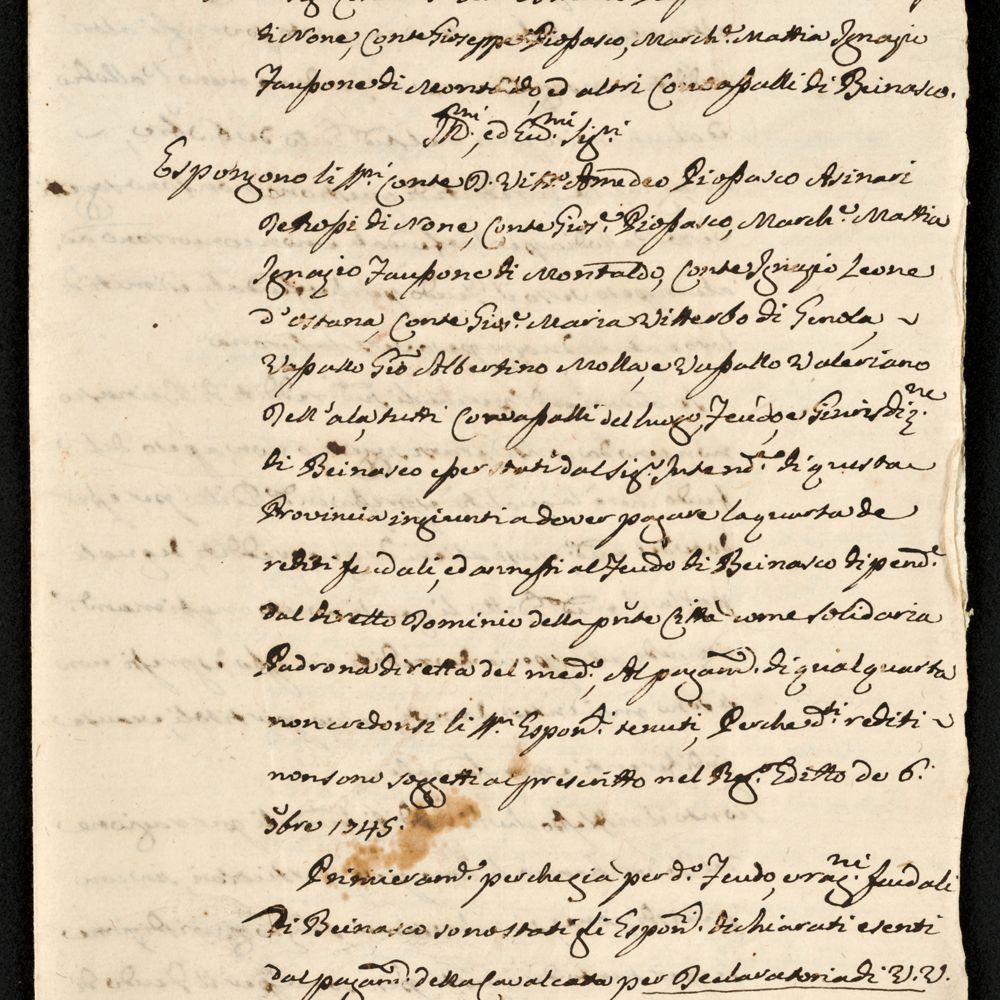 di None, Conte Giuseppe Piossasco, March.e Mattia Ignazio
Taupone di Montaldo, ed altri Convassalli di Beinasco.
Ill.mi, ed Ecc.mi Sig.ri
Espongono li ss.ri Conte D. Vitt.o Amedeo Piossasco Asinari
Derossi di None, Conte Gios.e Piossasco, March.e Mattia
Ignazio Taupone di Montaldo, Conte Ignazio Leone
d'ostana, Conte Gios.e Maria Vitterbo di Genola,
Vassallo Gio Albertino Molla, e Vassallo Valeriano
Dell'ala, tutti Convassalli del luogo, Feudo, e Giurisdiz.ne
di Beinasco esser stati dal Sig.r Intend.te di questa
Provincia ingiunti a dover pagare la quarta de
rediti feudali, ed annessi al Feudo di Beinasco dipend.e
dal diretto Dominio della pnte Città come solidaria
Padrona diretta del med.o, Al pagam.o di qual quarta
non credonsi li ss.ri Espon.ti tenuti, Perche d.ti rediti
non sono soggetti al prescritto nel Reg.o Editto de 6.
9bre 1745.
Primieram.e perche già per d.o Feudo, e rag.ni feudali
di Beinasco sono stati gli Espon.ti dichiarati esenti
dal pagam.o della Cavalcata per Declaratoria di V. V.